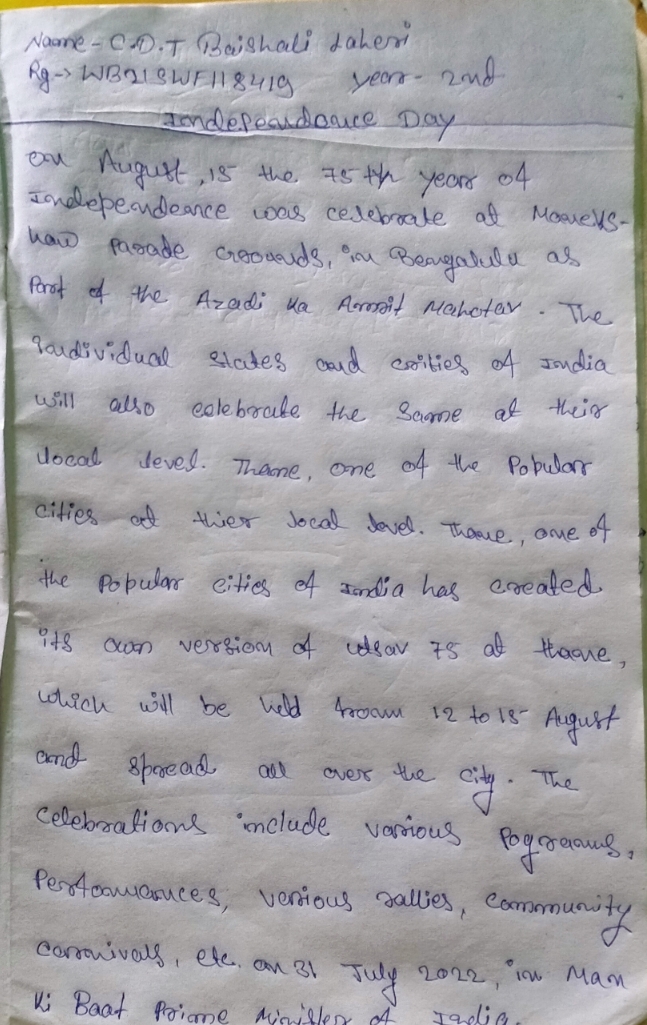 Name - C.D.T Baishali Laheri
Rg -> WB21SWF118419 year - 2nd
Independance Day
on August, 15 the 75 th year of
Independeance was celebrate at Maneks-
haw parade grounds, in Bengalulu as
Part of the Azadi ka Amrit Mahotav. The
individual states and cities of India
will also celebrate the same at their
local level. Thane, one of the Popular
cities at thier local level. Thane, one of
the Popular cities of India has created
its own version of utsav 75 at thane,
which will be held from 12 to 15 August
and spread all over the city. The
celebrations include various Pograms,
Performances, verious rallies, community
carnivals, etc. on 31 July 2022, in Man
Ki Baat Prime Minister of India.